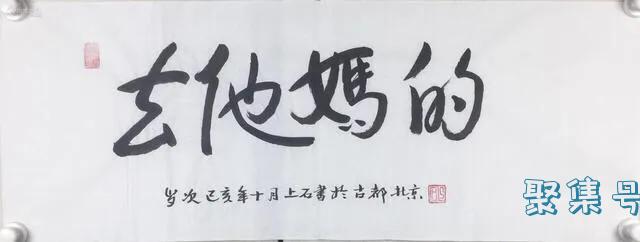 去他媽的
岁次己亥年十月上石書於古都北京
聚集号